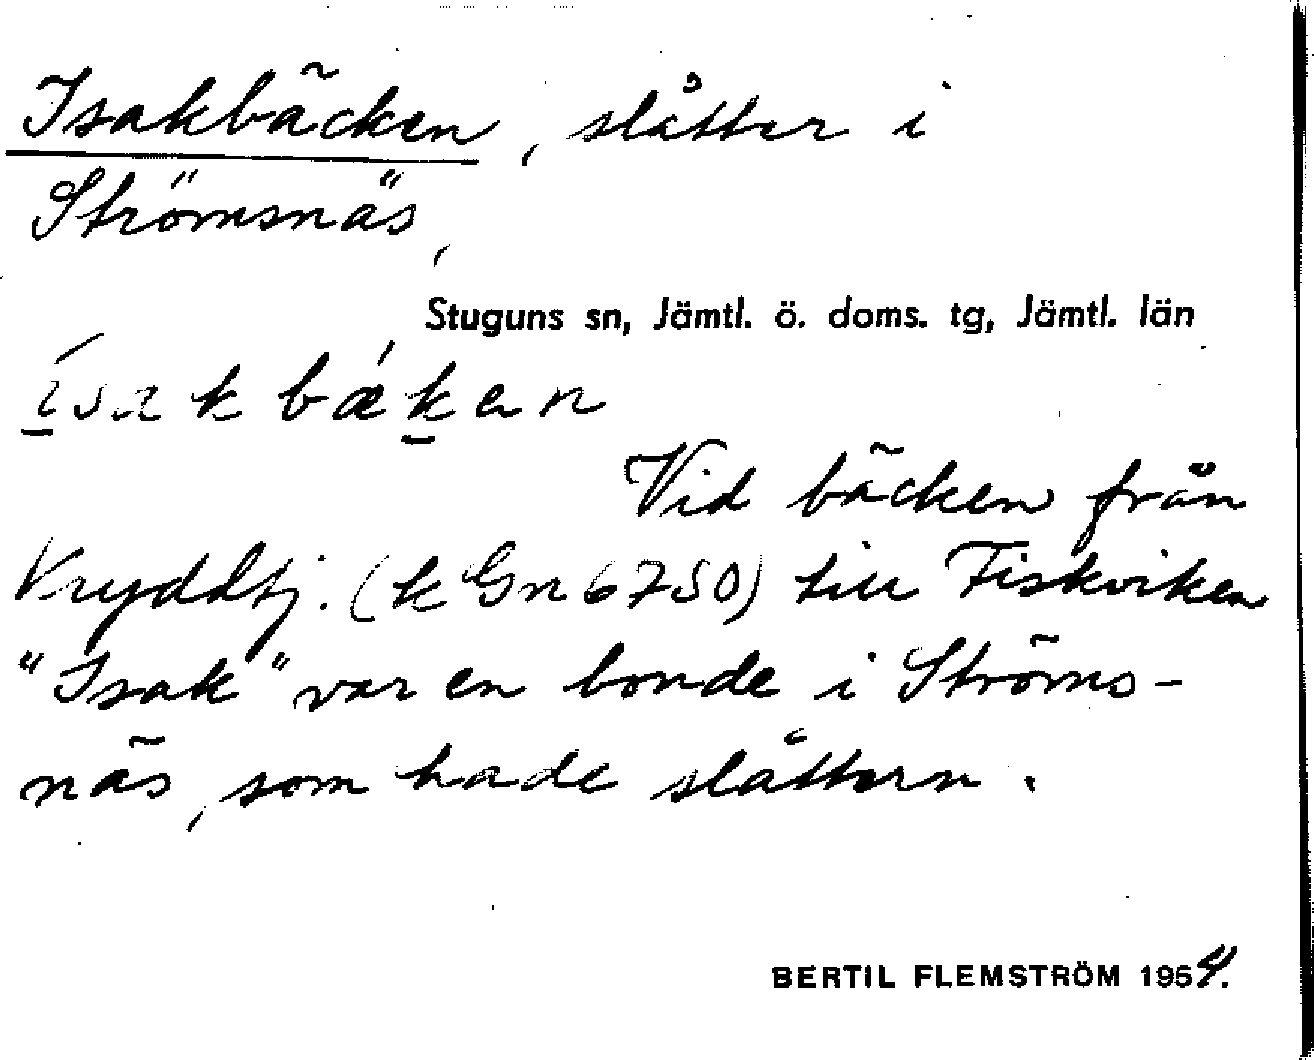 Isakbäcken, slåtter i
Strömsnäs,
Stuguns sn, Jämtl. ö. doms. tg, Jämtl. län
ísakbǽken
Vid bäcken från
Kryddtj. (k Gn 6750) till Fiskviken
"Isak" var en bonde i Ströms-
näs, som hade slåttern.
BERTIL FLEMSTRÖM 1954.